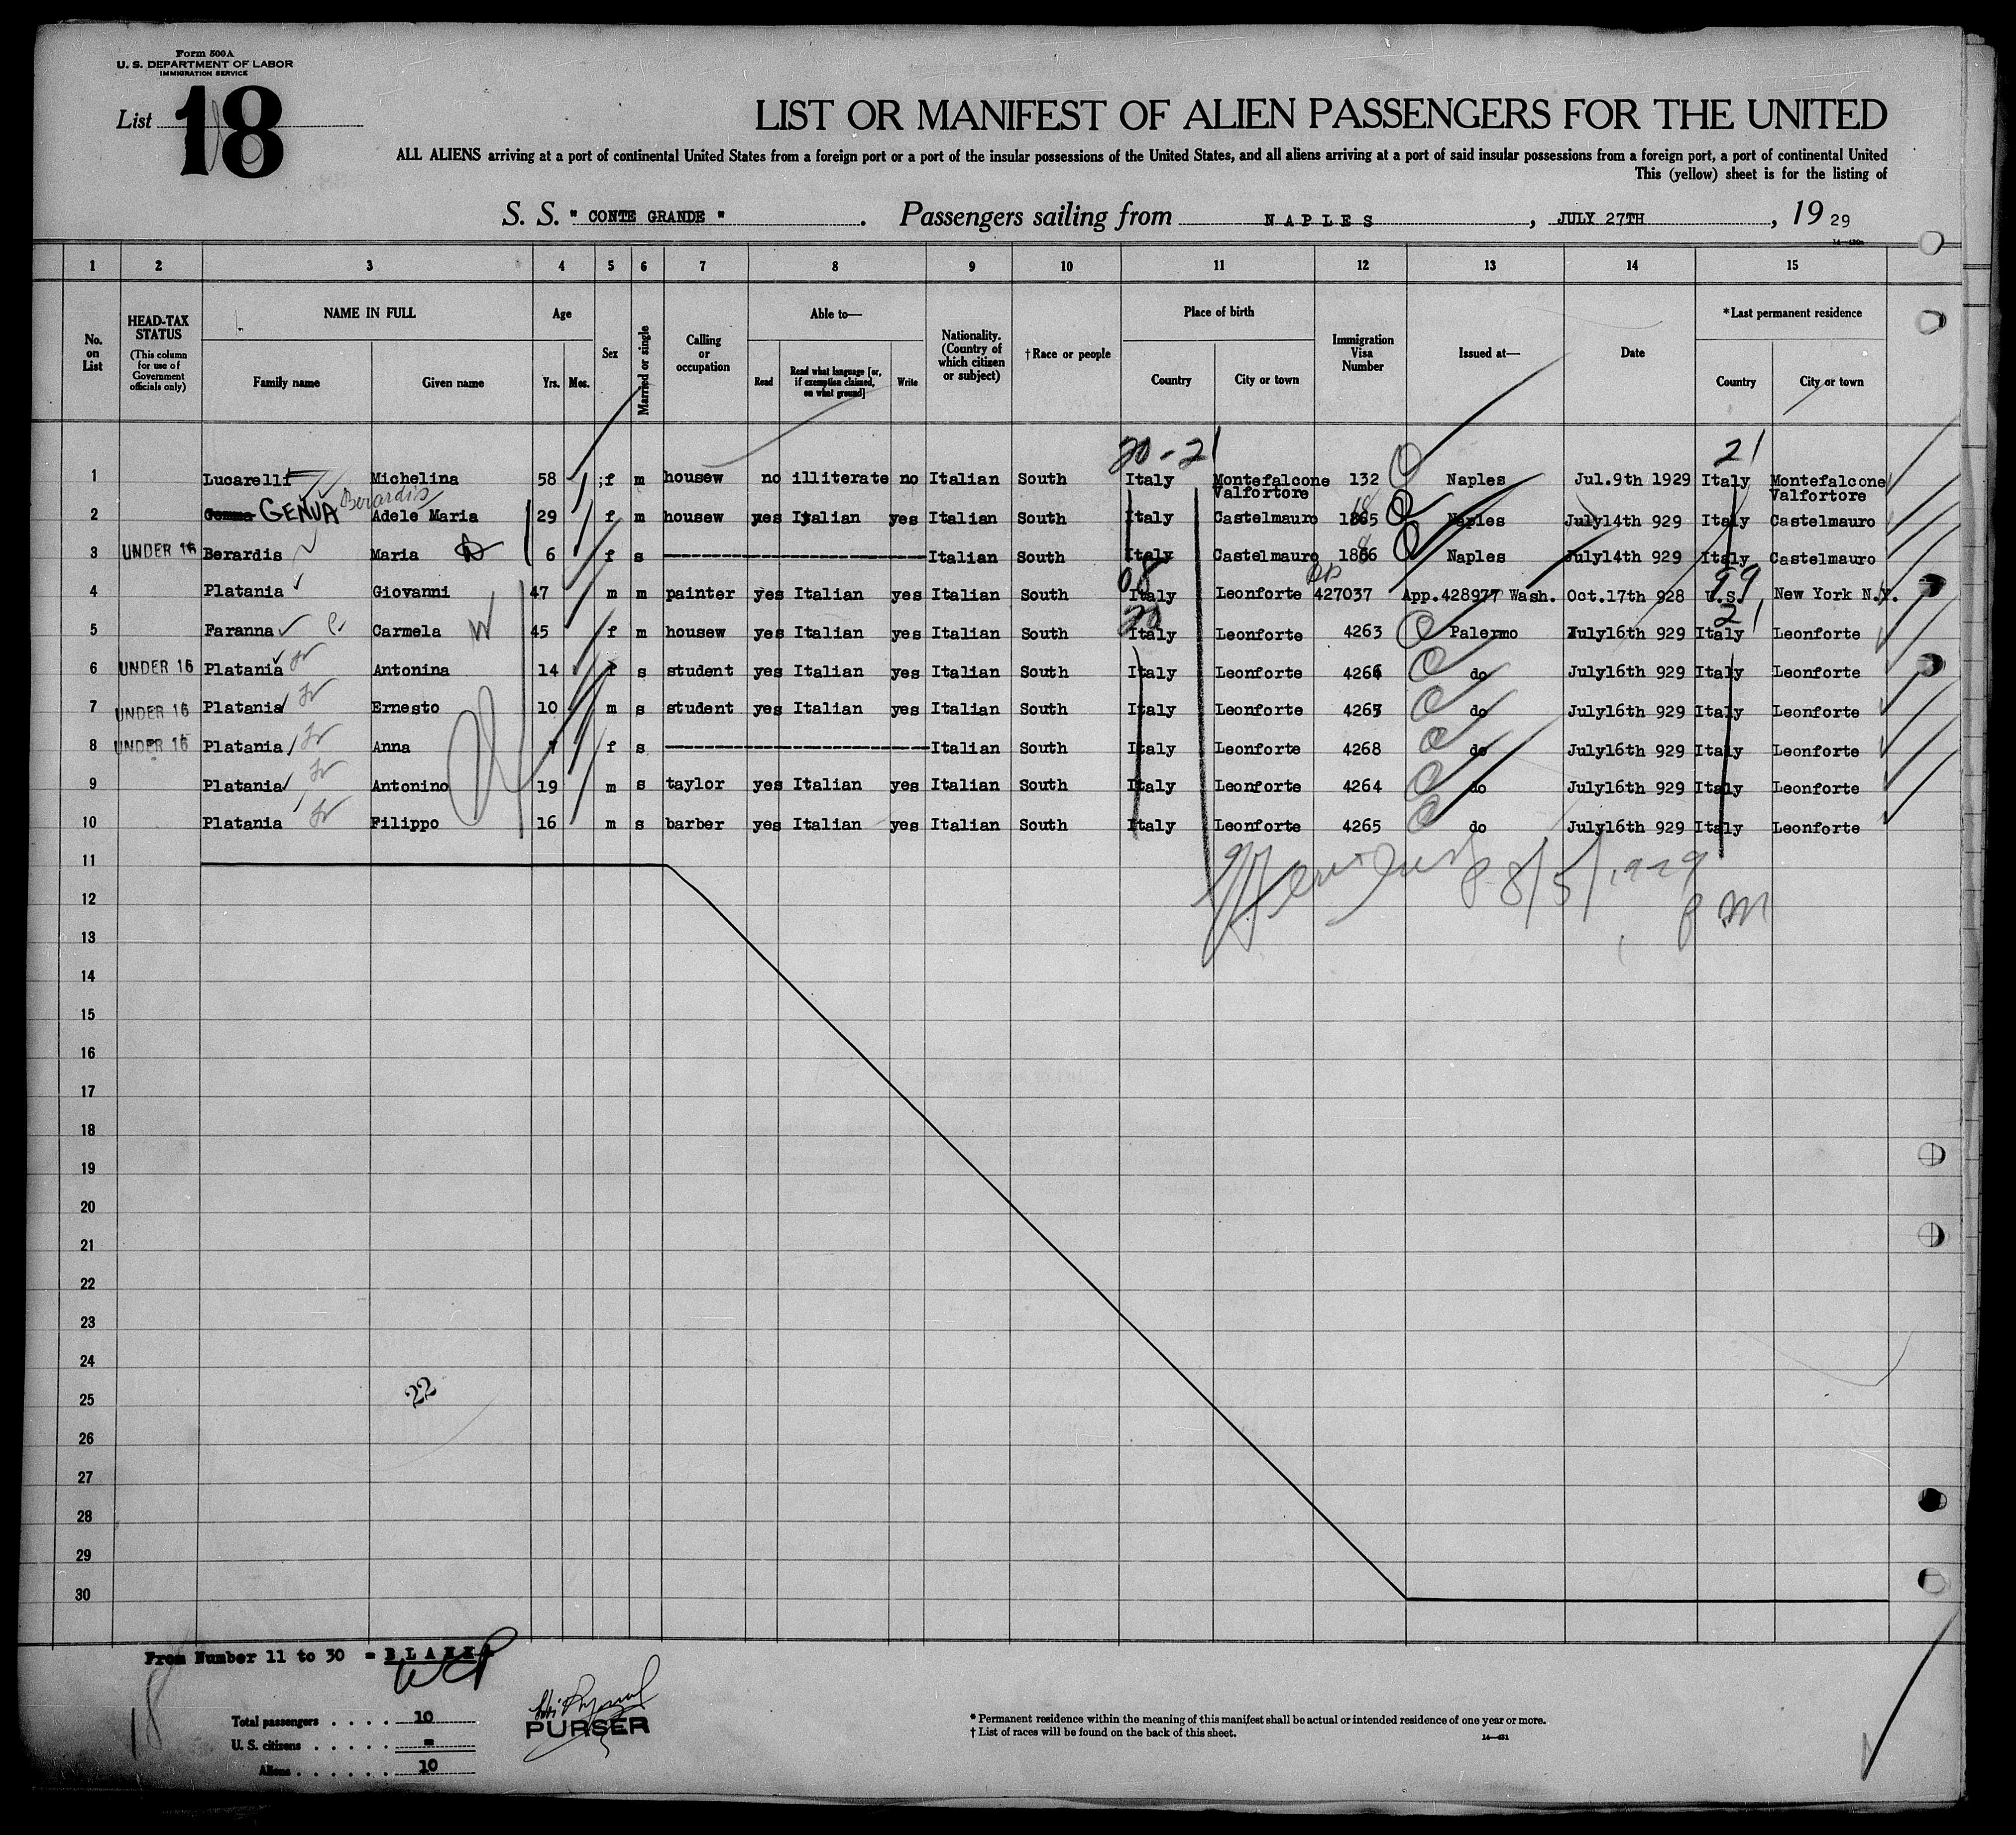 Form 500 A
U. S. DEPARTMENT OF LABOR
IMMIGRATION SERVICE
List 18
LIST OR MANIFEST OF ALIEN PASSENGERS FOR THE UNITED
ALL ALIENS arriving at a port of continental United States from a foreign port or a port of the insular possessions of the United States, and all aliens arriving at a port of said insular possessions from a foreign port, a port of continental United
This (yellow) sheet is for the listing of
S. S. " CONTE GRANDE ". Passengers sailing from NAPLES, JULY 27TH, 19 29
1 2 3 4 5 6 7 8 9 10 11 12 13 14 15
No. on List
HEAD-TAX STATUS (This column for use of Government officials only)
NAME IN FULL
Family name Given name
Age
Yrs. Mos.
Sex
Married or single
Calling or occupation
Able to—
Read Read what language [or, if exemption claimed, on what ground] Write
Nationality. (Country of which citizen or subject)
† Race or people
Place of birth
Country City or town
Immigration Visa Number
Issued at—
Date
* Last permanent residence
Country City or town
20-21 21
1 Lucarelli Michelina 58 f m housew no illiterate no Italian South Italy Montefalcone Valfortore 132 Naples Jul.9th 1929 Italy Montefalcone Valfortore
2 GENUA Berardis Adele Maria 29 f m housew yes Italian yes Italian South Italy Castelmauro 1865 Naples July14th 929 Italy Castelmauro
3 UNDER 16 Berardis Maria 6 f s Italian South Italy Castelmauro 1866 Naples July14th 929 Italy Castelmauro
08 99
4 Platania Giovanni 47 m m painter yes Italian yes Italian South Italy Leonforte 427037 App.428977 Wash. Oct.17th 928 U.S. New York N.Y.
20 21
5 Faranna Carmela W 45 f m housew yes Italian yes Italian South Italy Leonforte 4263 Palermo July16th 929 Italy Leonforte
6 UNDER 16 Platania Antonina 14 f s student yes Italian yes Italian South Italy Leonforte 4266 do July16th 929 Italy Leonforte
7 UNDER 16 Platania Ernesto 10 m s student yes Italian yes Italian South Italy Leonforte 4267 do July16th 929 Italy Leonforte
8 UNDER 16 Platania Anna 7 f s Italian South Italy Leonforte 4268 do July16th 929 Italy Leonforte
9 Platania Antonino 19 m s taylor yes Italian yes Italian South Italy Leonforte 4264 do July16th 929 Italy Leonforte
10 Platania Filippo 16 m s barber yes Italian yes Italian South Italy Leonforte 4265 do July16th 929 Italy Leonforte
11
8/5/1929
12
PM
13
14
15
16
17
18
19
20
21
22
23
24
25
22
26
27
28
29
30
From Number 11 to 30 = BLANK
18
Total passengers . . . . 10
U. S. citizens . . . . . =
Aliens . . . . . . 10
PURSER
* Permanent residence within the meaning of this manifest shall be actual or intended residence of one year or more.
† List of races will be found on the back of this sheet.
14—431